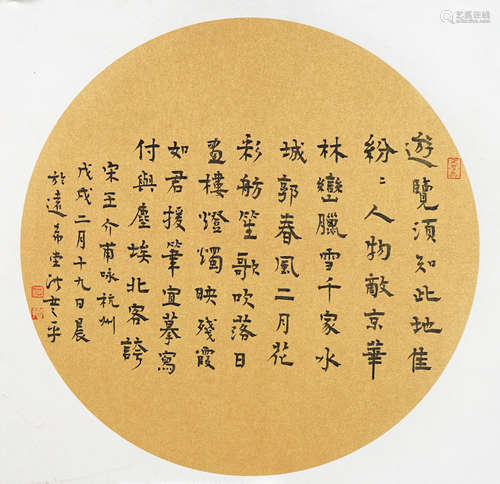 遊覽須知此地佳
紛〻人物敵京華
林巒臘雪千家水
城郭春風二月花
彩舫笙歌吹落日
畫樓燈燭映殘霞
如君援筆宜摹寫
付與塵埃北客誇
宋王介甫咏杭州
戊戌二月十九日晨
於遠希堂
艺狐在线